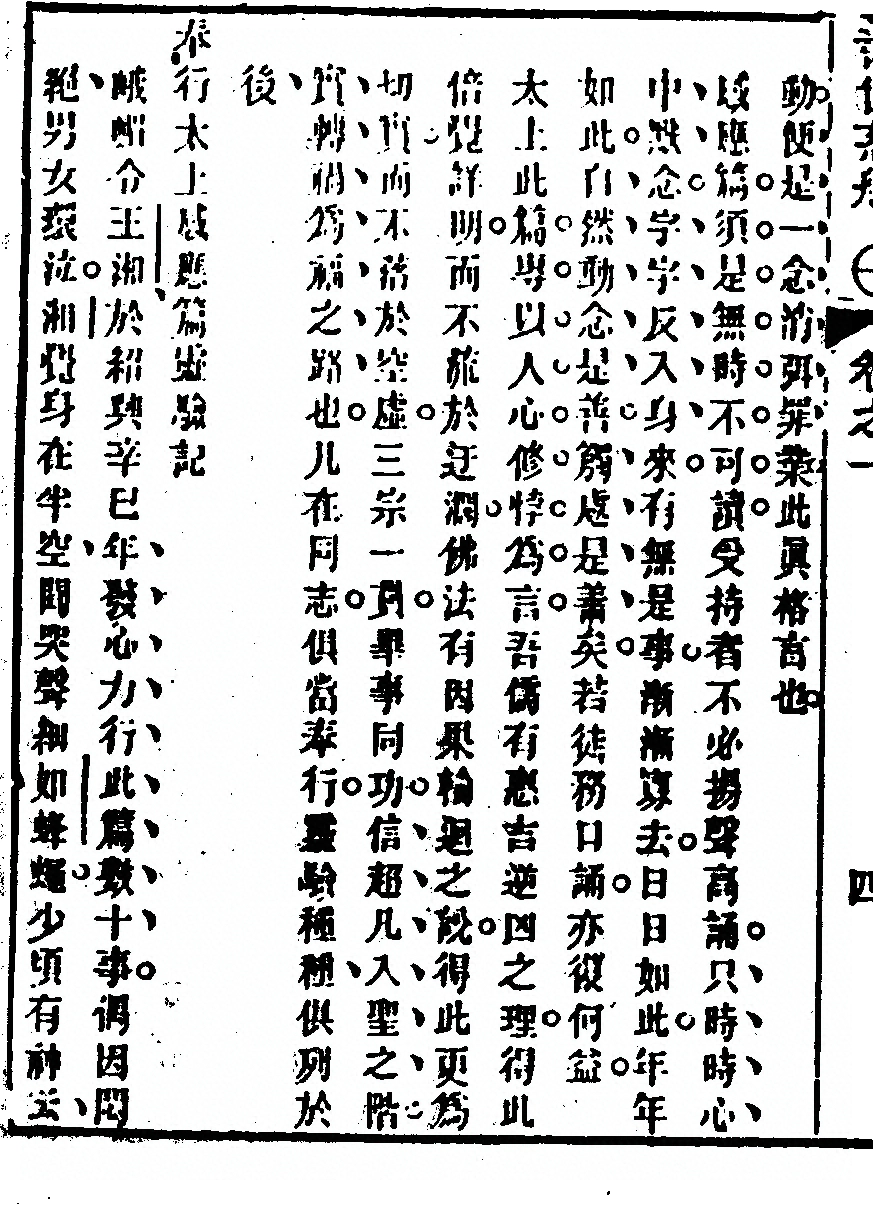 卷之一
四
動便是一念消弭罪業此眞格言也
感應篇須是無時不可讀受持者不必揚聲高誦只時時心
中默念字字反入身來有無是事漸漸算去日日如此年年
如此自然動念是善觸處是善矣若徒務口誦亦復何益
太上此篇專以人心修悖爲言吾儒有惠吉逆凶之理得此
倍覺詳明而不疏於迂濶佛法有因果輪迴之說得此更爲
切實而不落於空虛三宗一貫畢事同功信超凡入聖之階
實轉禍爲福之路也凡在同志俱當奉行靈驗種種俱列於
後
奉行太上感應篇靈驗記
峨嵋令王湘於紹興辛巳年發心力行此篇數十事偶因悶
絶男女環泣湘覺身在半空聞哭聲細如蜂蠅少頃有神云